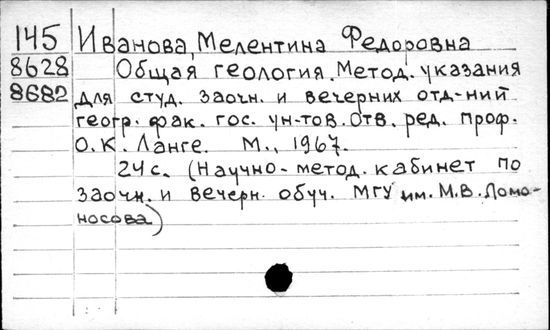 145 Иванова, Мелентина Федоровна
8628 Общая геология. Метод. указания
8682 для студ. заочн. и вечерних отд-ний
геогр. фак. гос. ун-тов. Отв. ред. проф.
О.К. Ланге. М., 1967.
24 с. (Научно-метод. кабинет по
заочн. и вечерн. обуч. МГУ им. М.В. Ломо-
носова)